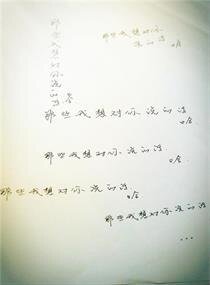 那些我想对你说的话
那些我想对你
说的话
哈
那些我想对你说的话
哈
那些我想对你说的话
哈
那些我想对你说的话
哈
那些我想对你说的话
哈
...